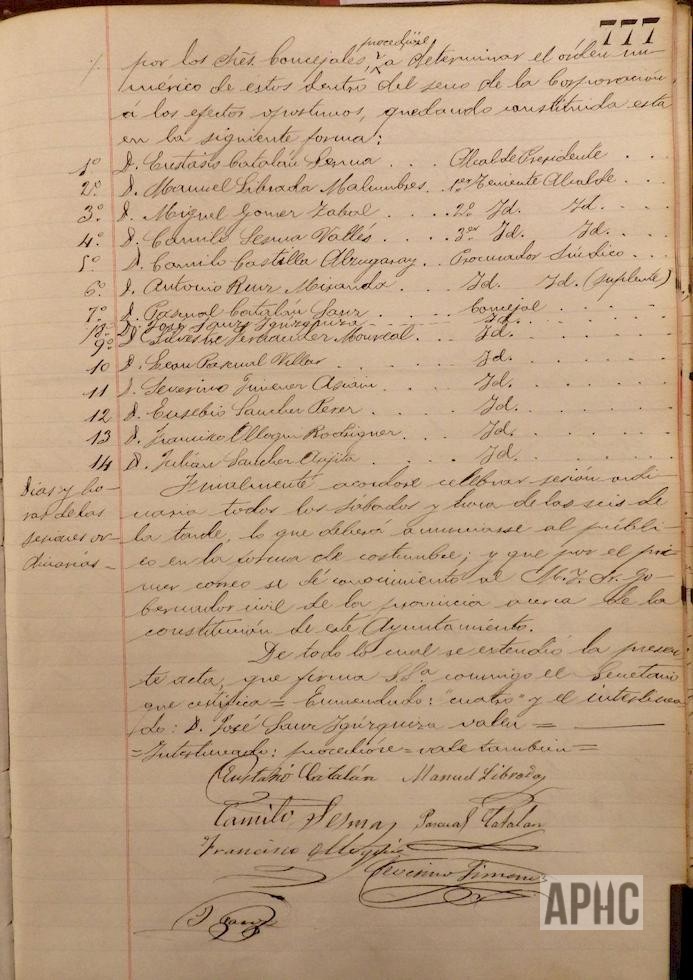 777
procedióse
por los Sres. Concejales a determinar el órden nu-
mérico de estos dentro del seno de la Corporación,
á los efectos oportunos, quedando constituida esta
en la siguiente forma:
1º D. Eustasio Catalán Lerma . . . Alcalde Presidente . . .
2º D. Manuel Librada Malumbres . 1er Teniente Alcalde . . .
3º D. Miguel Gomez Zabal . . . . 2º Id. Id. . . .
4º D. Camilo Sesma Vallés . . . . 3er Id. Id. . . .
5º D. Camilo Castilla Alzugaray . Procurador Síndico . . .
6º D. Antonio Ruiz Miranda . . . Id. Id. (suplente)
7º D. Pascual Catalán Sanz . . . Concejal . . .
8º D. José Sanz Igúzquiza . . . Id. . . .
9º D. Silvestre Fernandez Monreal . . Id. . . .
10 D. Leon Pascual Villar . . . Id. . . .
11 D. Severino Jimenez . . . Id. . . .
12 D. Eusebio Sanchez Perez . . . Id. . . .
13 D. Francisco Ulloqui Rodriguez . . . Id. . . .
14 D. Julián Sanchez . . . Id. . . .
Dias y ho-
ras de las
sesiones or-
dinarias -
Finalmente acordóse celebrar sesión ordi-
naria todos los sábados y hora de las seis de
la tarde, lo que deberá anunciarse al públi-
co en la forma de costumbre; y que por el pri-
mer correo se dé conocimiento al M. I. Sr. Go-
bernador civil de la provincia acerca de la
constitución de este Ayuntamiento.
De todo lo cual se extendió la presen-
te acta, que firma SSª conmigo el Secretario
que certifica = Enmendado: "cuatro" y el interlinea-
do: D. José Sanz Igúzquiza valen =
= Interlineado: procedióse = vale tambien =
Eustasio Catalán Manuel Librada
Camilo Sesma Pascual Catalan
Francisco Ulloqui
Severino Jimenez
APHC